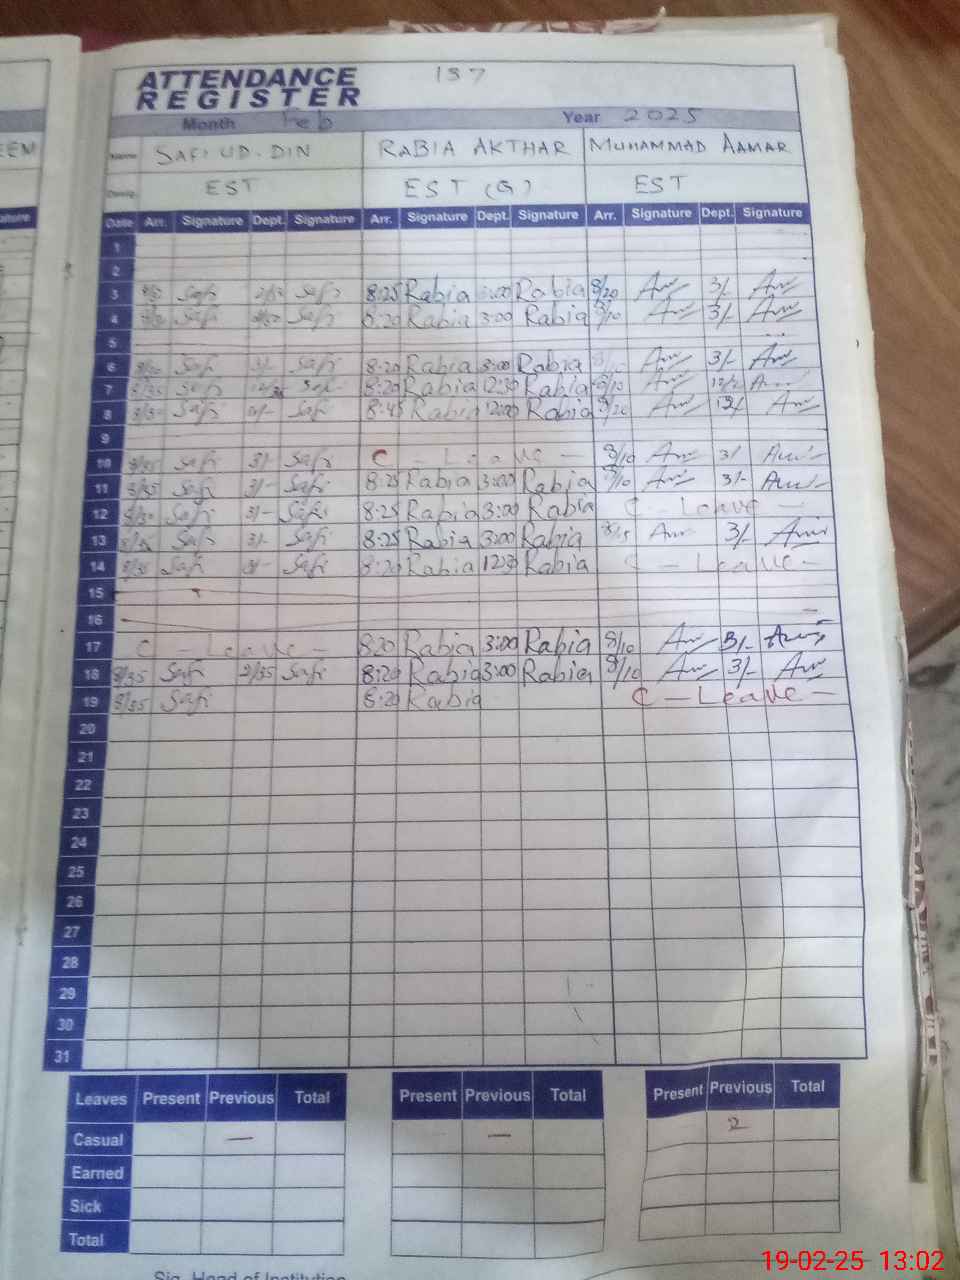 ATTENDANCE
REGISTER
137
Month Feb Year 2025
EEM
Name SAFI UD.DIN RABIA AKTHAR MUHAMMAD AAMAR
Desig. EST EST (G) EST
Date Arr. Signature Dept. Signature Arr. Signature Dept. Signature Arr. Signature Dept. Signature
1
2
3 Safi Safi 8:25 Rabia 3:00 Rabia 8/20 3/-
4 Safi Safi 8:20 Rabia 3:00 Rabia 8/10 3/-
5
6 Safi 3/- Safi 8:20 Rabia 3:00 Rabia 3/-
7 Safi Safi 8:20 Rabia 12:30 Rabia 8/10
8 Safi Safi 8:45 Rabia 12:00 Rabia 8/20 12/
9
10 8/35 Safi 3/- Safi C - Leave - 8/10 3/
11 8/35 Safi 3/- Safi 8:25 Rabia 3:00 Rabia 8/10 3/-
12 Safi 3/- Safi 8:25 Rabia 3:00 Rabia C - Leave -
13 Safi 3/- Safi 8:25 Rabia 3:00 Rabia 8/15 3/-
14 8/35 Safi 3/- Safi 8:20 Rabia 12:30 Rabia C - Leave -
15
16
17 C - Leave - 8:20 Rabia 3:00 Rabia 8/10 3/-
18 8/35 Safi 2/55 Safi 8:20 Rabia 3:00 Rabia 8/10 3/-
19 8/35 Safi 8:20 Rabia C - Leave -
20
21
22
23
24
25
26
27
28
29
30
31
Leaves Present Previous Total Present Previous Total Present Previous Total
Casual — — 2
Earned
Sick
Total
Sig. Head of Institution
19-02-25 13:02